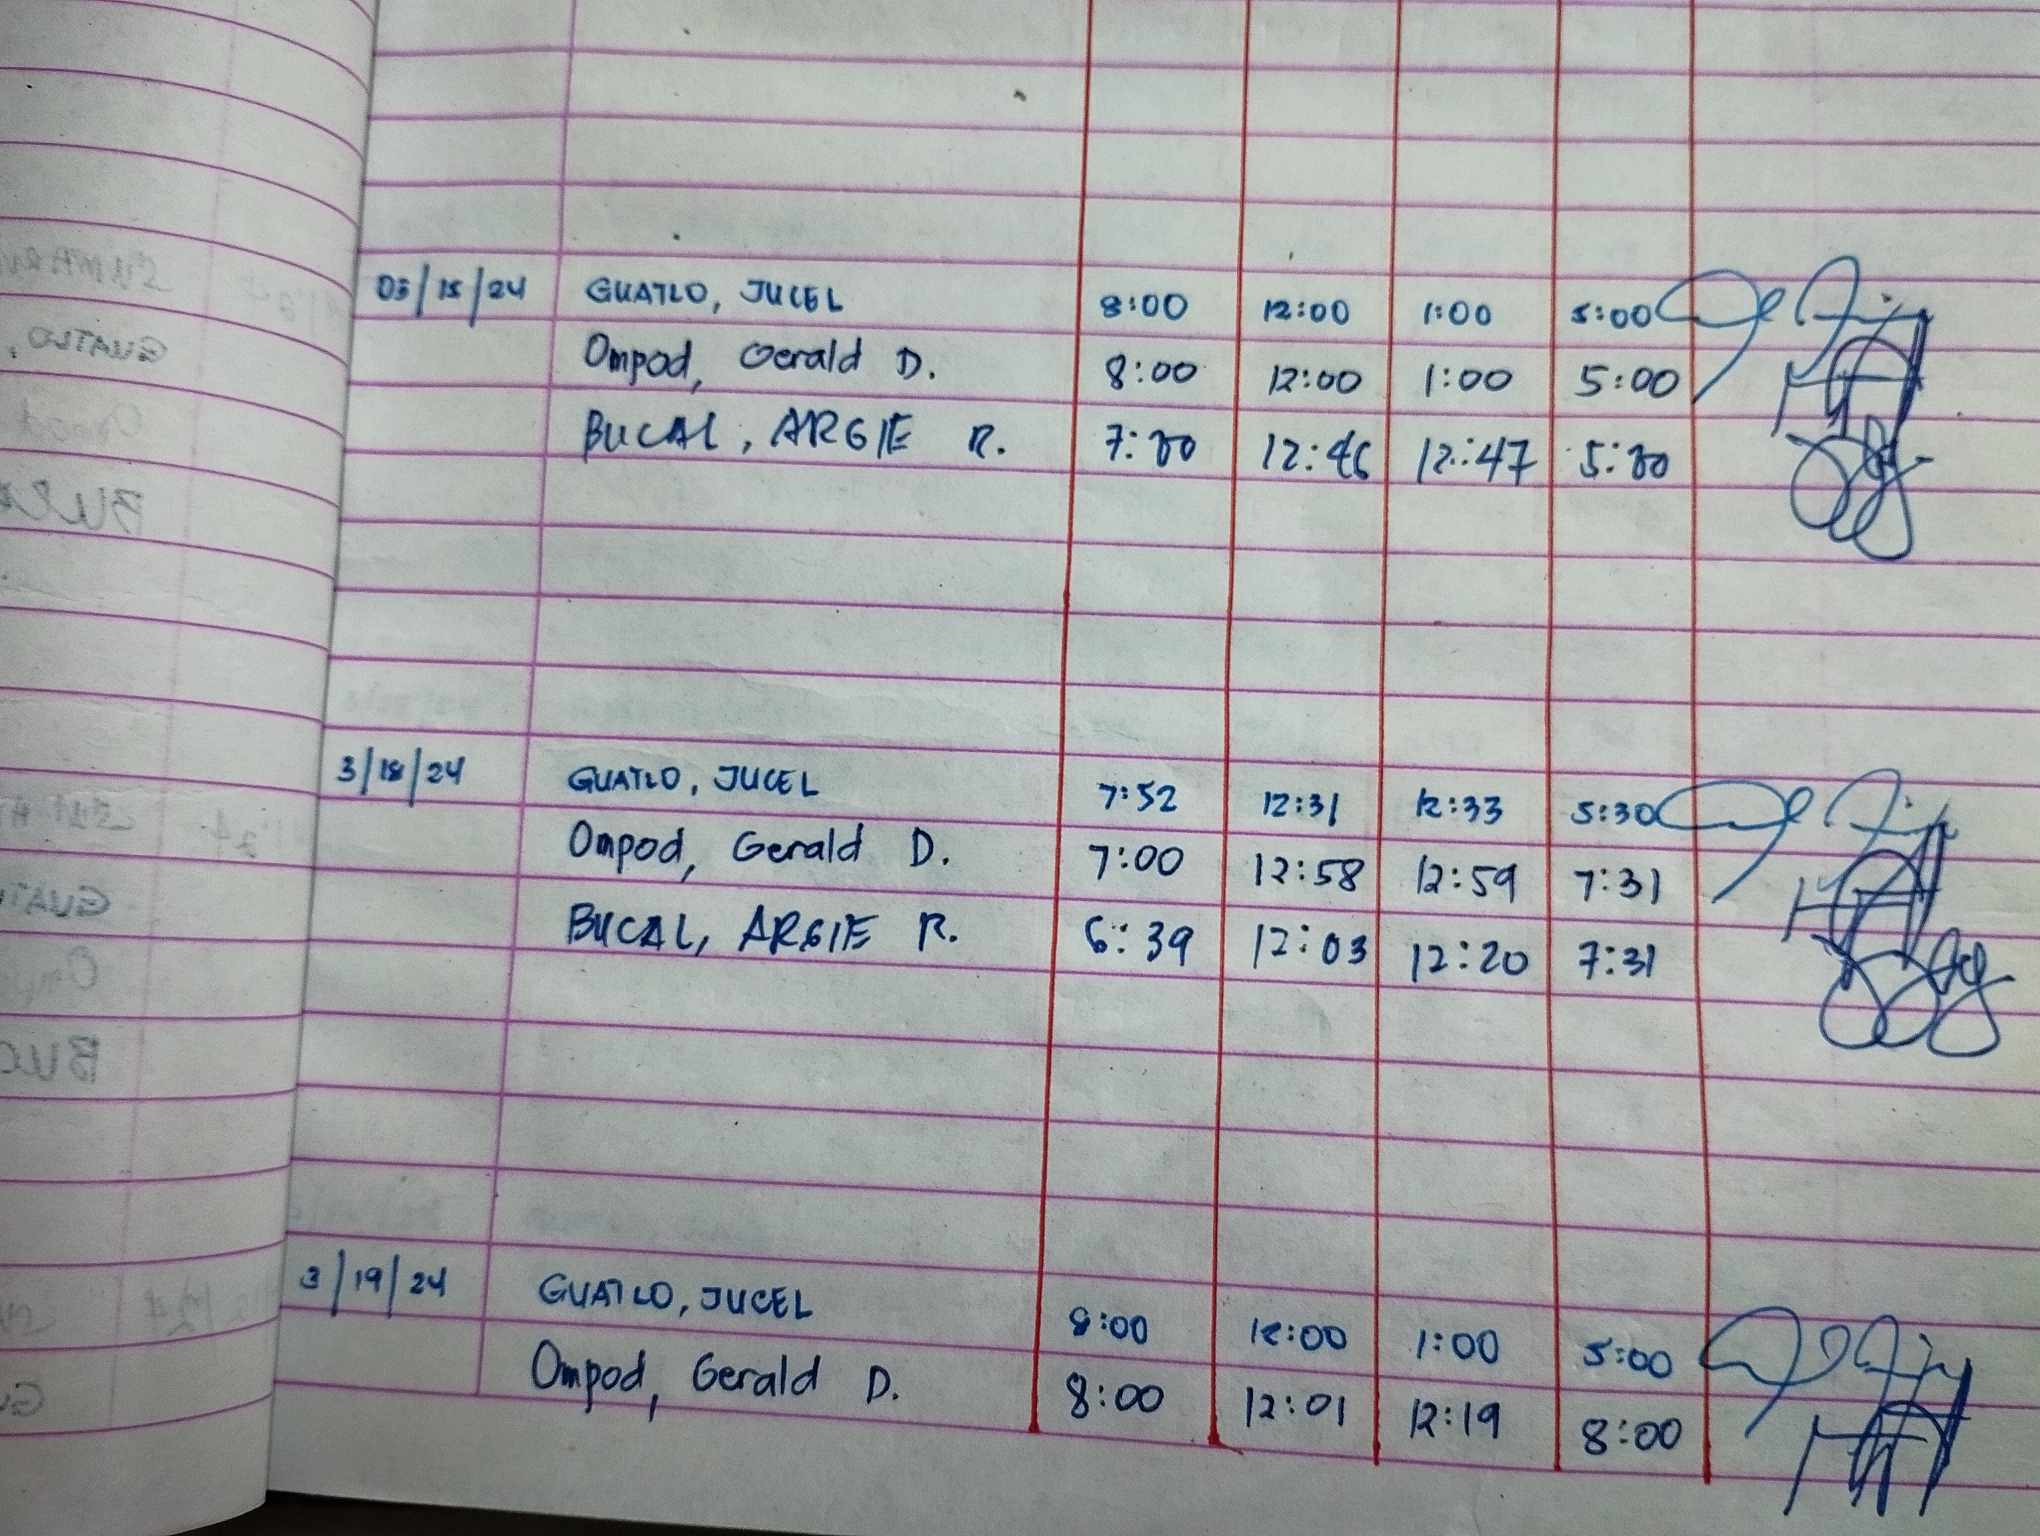 03/15/24 GUATLO, JUCEL 8:00 12:00 1:00 5:00
Ompod, Gerald D. 8:00 12:00 1:00 5:00
BUCAL, ARGIE R. 12:46 12:47
3/18/24 GUATLO, JUCEL 7:52 12:31 12:33 5:30
Ompod, Gerald D. 7:00 12:58 12:59 7:31
BUCAL, ARGIE R. 6:39 12:03 12:20 7:31
3/19/24 GUATLO, JUCEL 8:00 12:00 1:00 5:00
Ompod, Gerald D. 8:00 12:01 12:19 8:00